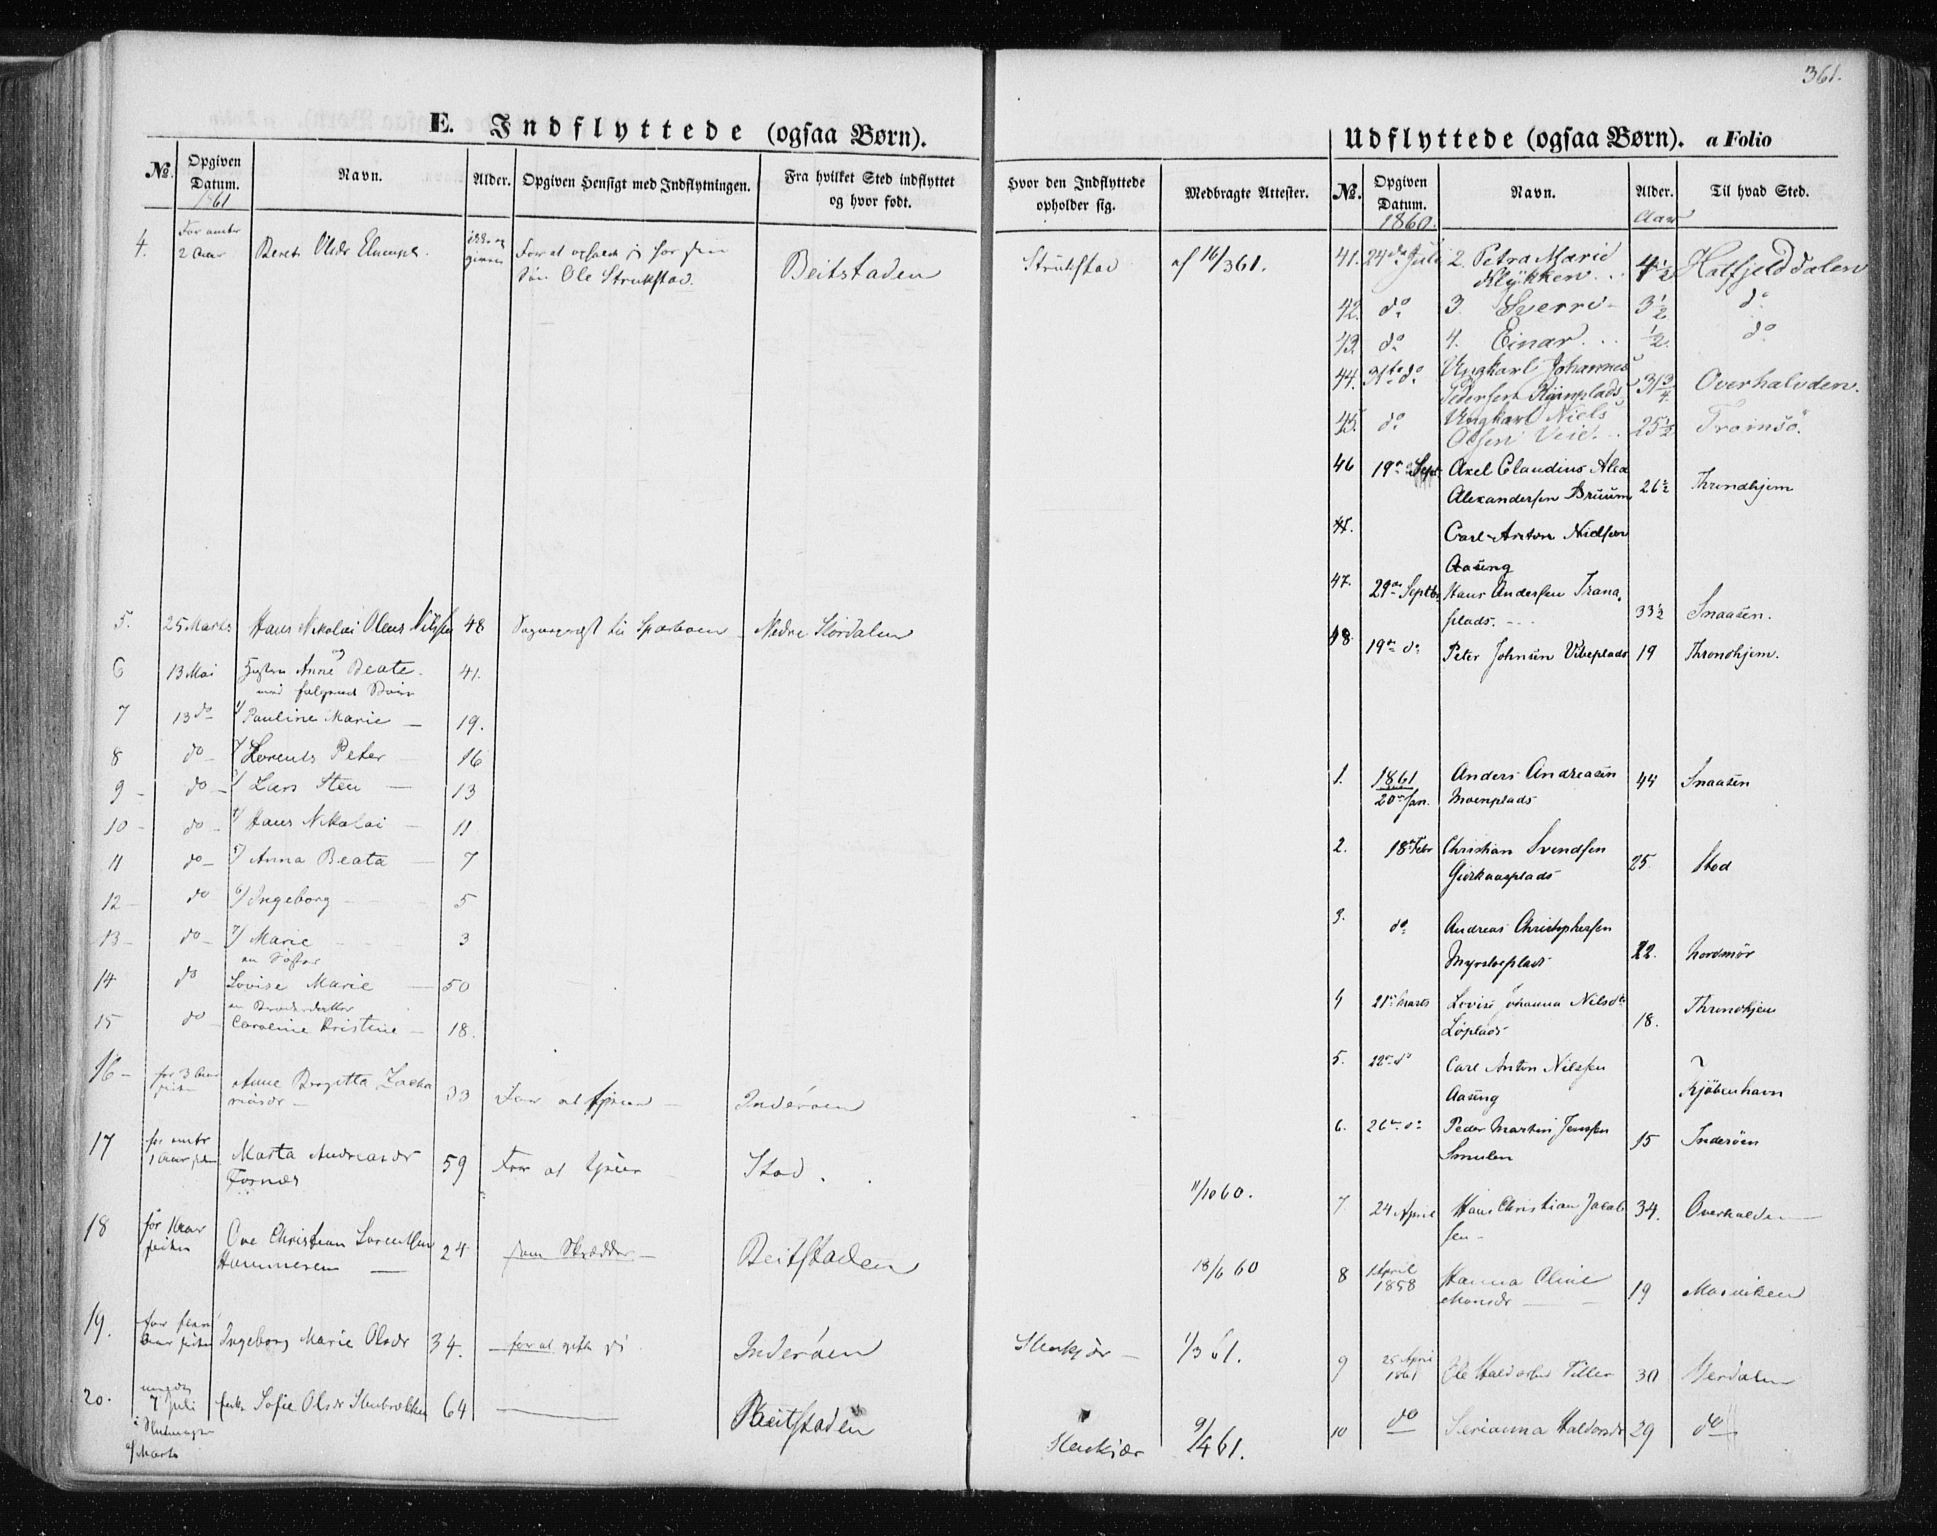 361.
E. Indflyttede (ogsaa Børn).
№.
Opgiven Datum.
Navn.
Alder.
Opgiven Hensigt med Indflytningen.
Fra hvilket Sted indflyttet og hvor født.
Hvor den Indflyttede opholder sig.
Medbragte Attester.
1861
4. For omtr 2 Aar Beret Olsdr
Søn Ole Strukstad. Beitstaden Strukstad af 16/3 61.
5. 25 Marts Hans Nikolai Olaus 48 Nedre Stordalen
6 13 Mai Anne Beate 41.
med følgende Børn
7 13 do 1/ Pauline Marie — 19.
8 do 2/ Lorents Peter — 16
9 - do - 3/ Lars Sten — 13
10 - do - 4/ Hans Nikolai — 11
11 do - 5/ Anna Beata — 7
12 - do 6/ Ingeborg - - - 5
13 - do - 7/ Marie - - - 3
en Søster
14 do Lovise Marie — 50
en Broderdatter
15 do - Caroline Kristine — 18.
16 - for 3 Aar siden Anne Brogitta Zacha
riasdr — 33 at tjene — Inderøen
17 for omtr 1 Aar siden Marta Andreasdr
Fosnæs 59 For at tjene Stod. 11/10 60.
18 for 1 Aar siden Ove Christian Lorentsen
Hammerem — 24 som Skrædder — Beitstaden 18/6 60
19. Aar siden Ingeborg Marie Olsdr 34. — for at Inderøen Stenkjær — 1/3 61.
20. 7 Juli Sofie Olsdr 64 — Beitstaden Stenkjær 9/4 61.
Udflyttede (ogsaa Børn). a Folio
№.
Opgiven Datum.
Navn.
Alder.
Til hvad Sted.
1860. Aar
41. 24de Juli 2. Petra Marie
Klykken . . 4½ Hatfjelddalen
42. do 3. Sverre - 3½ do
43. do 4. Einar . . . ½. do
44. 31te do Ungkarl Johannes
Pedersen 31¾ Overhalvden.
45. do Ungkarl Niels
Olsen Veie. . . 25½ Tromsö.
46 19de Sept Axel Claudius Alex
Alexandersen Bruum 26½ Throndhjem
Carl Anton Nielsen
Aasung
47. 29de Septbr Hans Andersen Trana-
plads. - - 33½ Snaasen.
48 19de do Peter Johnsen Vibeplads 19 Throndhjem.
1. 1861
20de Jan. Anders Andreasen
Moenplads 44 Snaasen
2. 18de Febr Christian Svendsen
25. Stod
3. do Andreas Christophersen
22. Nordmør
4 21de Marts Lovise Johanna Nilsdtr
Löplads 18. Throndhjem
5. 22de do Carl Anton Nilssen
Aasung Kjöbenhavn
6. 26de do Peder Martin Jenssen
Smulen 15 Inderøen
7. 24 April Hans Christian Jacob
sen - 34. Overhalden —
8 1 April
1858 Hanna Oline
Monsdr — 19 Mosviken
9 25 April
1861 Ole Haldorsen Tiller 30 Verdalen
10 do Serianna Haldorsdr 29 do